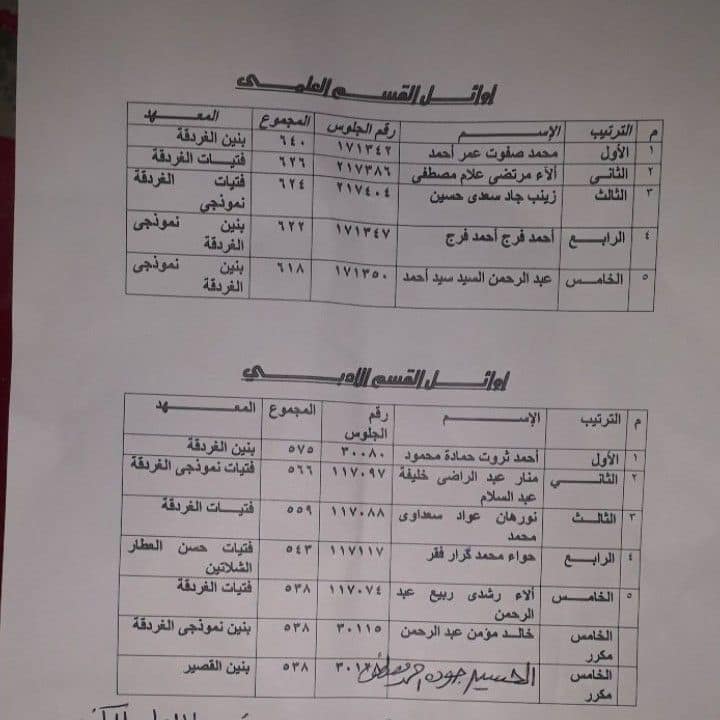 اوائل القسم العلمى
م الترتيب الإسم رقم الجلوس المجموع المعهد
١ الأول محمد صفوت عمر أحمد ١٧١٣٤٢ ٦٤٠ بنين الغردقة
٢ الثانى ألاء مرتضى علام مصطفى ٢١٧٣٨٦ ٦٢٦ فتيات الغردقة
٣ الثالث زينب جاد سعدى حسين ٢١٧٤٠٤ ٦٢٤ فتيات الغردقة
نموذجى
٤ الرابع أحمد فرج أحمد فرج ١٧١٣٤٧ ٦٢٢ بنين نموذجى
الغردقة
٥ الخامس عبد الرحمن السيد سيد أحمد ١٧١٣٥٠ ٦١٨ بنين نموذجى
الغردقة
اوائل القسم الادبى
م الترتيب الإسم رقم المجموع المعهد
الجلوس
١ الأول أحمد ثروت حمادة محمود ٣٠٠٨٠ ٥٧٥ بنين الغردقة
٢ الثاني منار عبد الراضى خليفة ١١٧٠٩٧ ٥٦٦ فتيات نموذجى الغردقة
عبد السلام
٣ الثالث نورهان عواد سعداوى ١١٧٠٨٨ ٥٥٩ فتيات الغردقة
محمد
٤ الرابع حواء محمد كرار فقر ١١٧١١٧ ٥٤٣ فتيات حسن العطار
الشلاتين
٥ الخامس ألاء رشدى ربيع عبد ١١٧٠٧٤ ٥٣٨ فتيات الغردقة
الرحمن
الخامس خالد مؤمن عبد الرحمن ٣٠١١٥ ٥٣٨ بنين نموذجى الغردقة
مكرر
الخامس الحسين جوده احمد مصطفى ٥٣٨ بنين القصير
مكرر